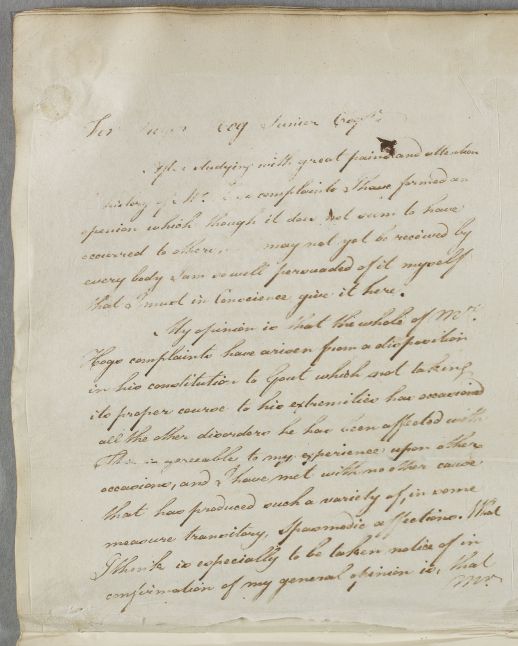 For Hogg Junior Esqr.
After studying with great pains and attention
history of Mr. complaints I have formed an
opinion which though it does not seem to have
occurred to others, may not yet be received by
every body I am so well persuaded of it myself
that I must in Conscience give it here.
My opinion is that the whole of Mr.
Hogs complaints have arisen from a disposition
in his constitution to Gout which not taking
its proper course to his extremities has occasiond
all the other disorders he has been affected with
This is agreeable to my experience upon other
occasions, and I have met with no other cause
that has produced such a variety of, in some
measure transitory, spasmodic affections. What
I think is especially to be taken notice of in
confirmation of my general opinion is, that
Mr.